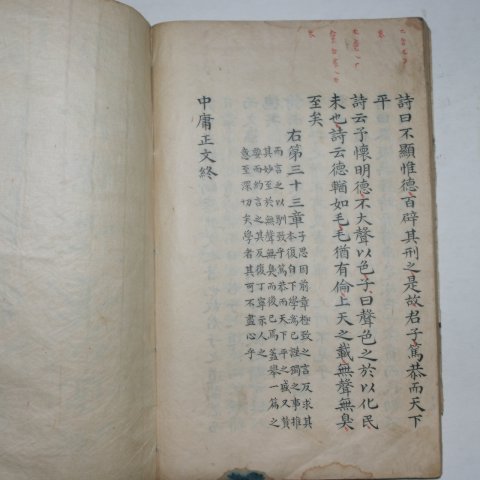 詩曰不顯惟德百辟其刑之是故君子篤恭而天下
平
詩云予懷明德不大聲以色子曰聲色之於以化民
末也詩云德輶如毛毛猶有倫上天之載無聲無臭
至矣
右第三十三章子思因前章極致之言反求其
本復自下學爲己謹獨之事推
而言之以馴致乎篤恭而天下平之盛又贊
其妙至於無聲無臭而後已焉蓋擧一篇之
要而約言之其反復丁寧示人之
意至深切矣學者其可不盡心乎
中庸正文終